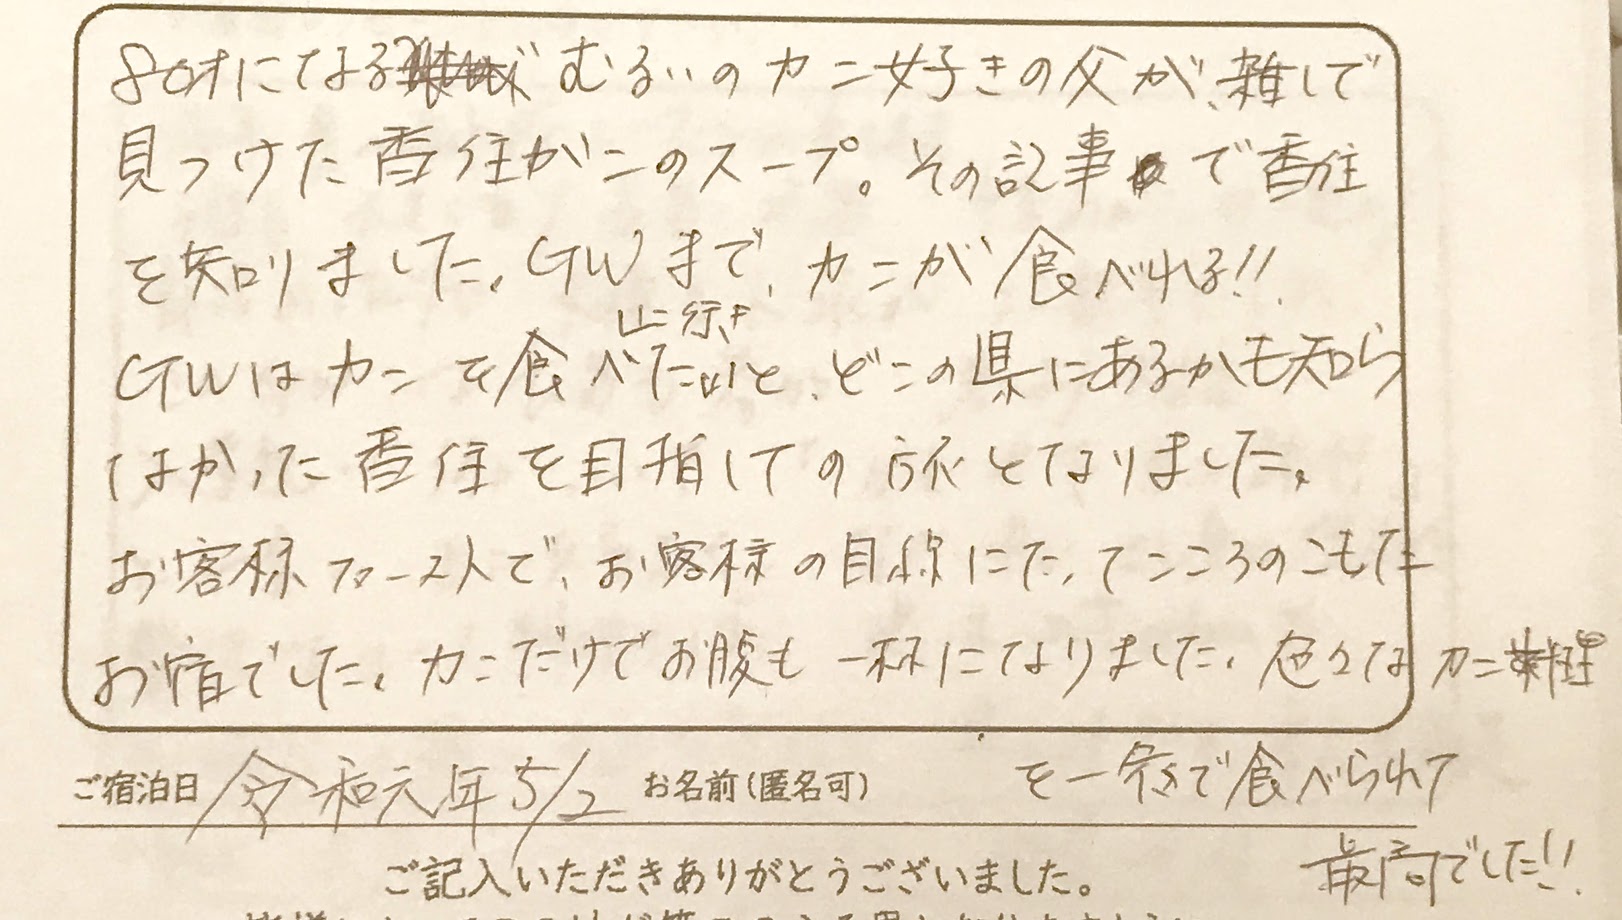 80才になる むるいのカニ好きの父が、雑しで
見つけた香住がニのスープ。その記事で香住
を知りました。GWまで、カニが食べれる!!
に行き
GWはカニを食べたいと、どこの県にあるかも知ら
なかった香住を目指しての旅となりました。
お客様ファーストで、お客様の目線にたってこころのこもった
お宿でした。カニだけでお腹も一杯になりました。色々なカニ料理
を一行で食べられて
最高でした!!
ご宿泊日 令和元年5/2 お名前(匿名可)
ご記入いただきありがとうございました。